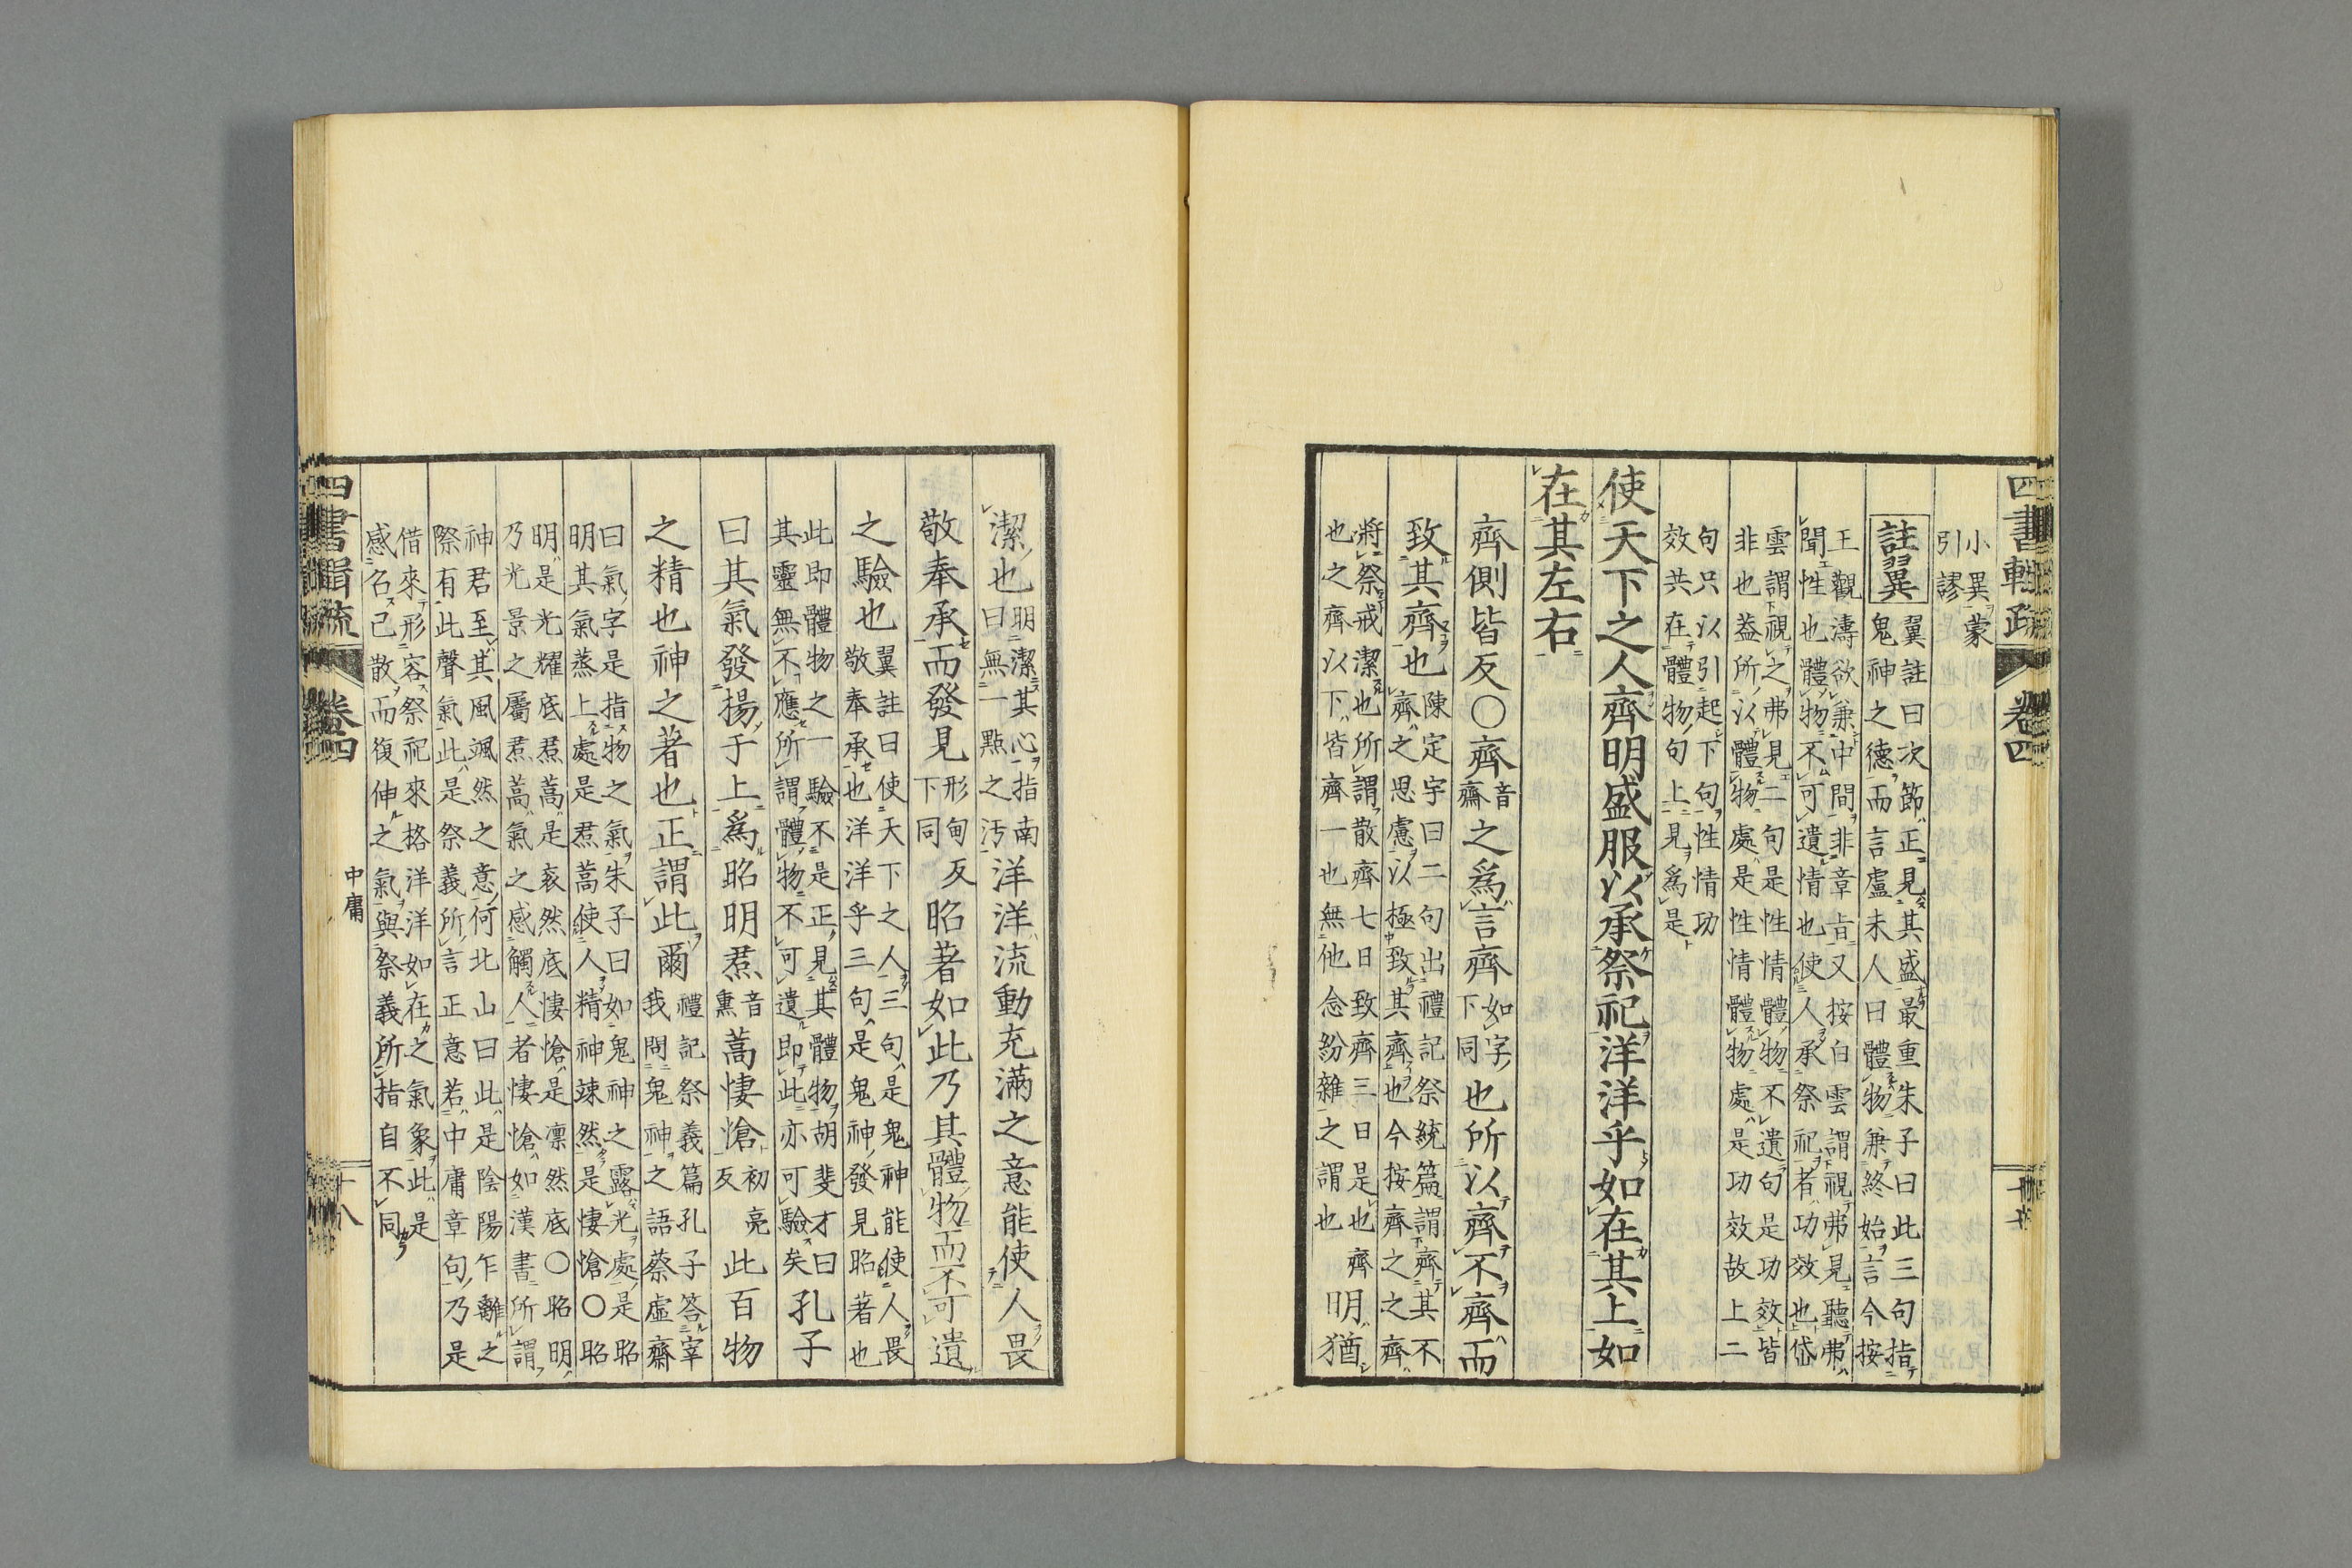 四書輯疏 卷四
小異蒙
引謬
註翼
翼註曰次節正見其盛最重朱子曰此三句指
鬼神之德而言盧未人曰體物兼終始言今按
王觀濤欲兼中間非章旨又按白雲謂視弗見聽弗
聞性也體物不可遺情也使人承祭祀者功效也岱
雲謂視之弗見二句是性情體物不遺句是功效皆
非也葢所以體物處是性情體物處是功效故上二
句只以引起下句性情功
效共在體物句上見爲是
使天下之人齊明盛服以承祭祀洋洋乎如在其上如
在其左右
齊側皆反○齊音齋之爲言齊如字下同也所以齊不齊而
致其齊也陳定宇曰二句出禮記祭統篇謂齊其不
齊之思慮以極致其齊也今按齊之之齊
將祭戒潔也所謂散齊七日致齊三日是也齊
也之齊以下皆齊一也無他念紛雜之謂也
明猶
潔也明潔其心指南
曰無一點之汚
洋洋流動充滿之意能使人畏
敬奉承而發見形甸反
下同
昭著如此乃其體物而不可遺
之驗也翼註曰使天下之人三句是鬼神能使人畏
敬奉承也洋洋乎三句是鬼神發見昭著也
此即體物之一驗不是正見其體物胡斐才曰
其靈無不應所謂體物不可遺即此亦可驗矣
孔子
曰其氣發揚于上爲昭明焄音
熏
蒿悽愴初亮
反
此百物
之精也神之著也正謂此爾禮記祭義篇孔子答宰
我問鬼神之語蔡虛齋
曰氣字是指物之氣朱子曰如鬼神之露光處是昭
明其氣蒸上處是焄蒿使人精神竦然是悽愴○昭
明是光耀底焄蒿是衮然底悽愴是凛然底○昭明
乃光景之屬焄蒿氣之感觸人者悽愴如漢書所謂
神君至其風颯然之意何北山曰此是陰陽乍離之
際有此聲氣此是祭義所言正意若中庸章句乃是
借來形容祭祀來格洋洋如在之氣象此是
感召已散而復伸之氣與祭義所指自不同
四書輯疏 卷四 中庸 十八